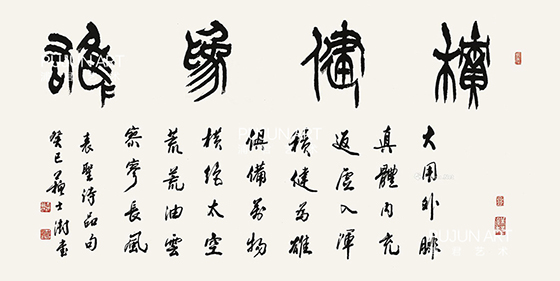 積健為雄
大用外腓
真體内充
返虛入渾
積健為雄
俱備萬物
橫絕太空
荒荒油雲
寥寥長風
表聖詩品句
癸巳蘇士澍書
PUJUN ART
PUJUN ART
PUJUN ART